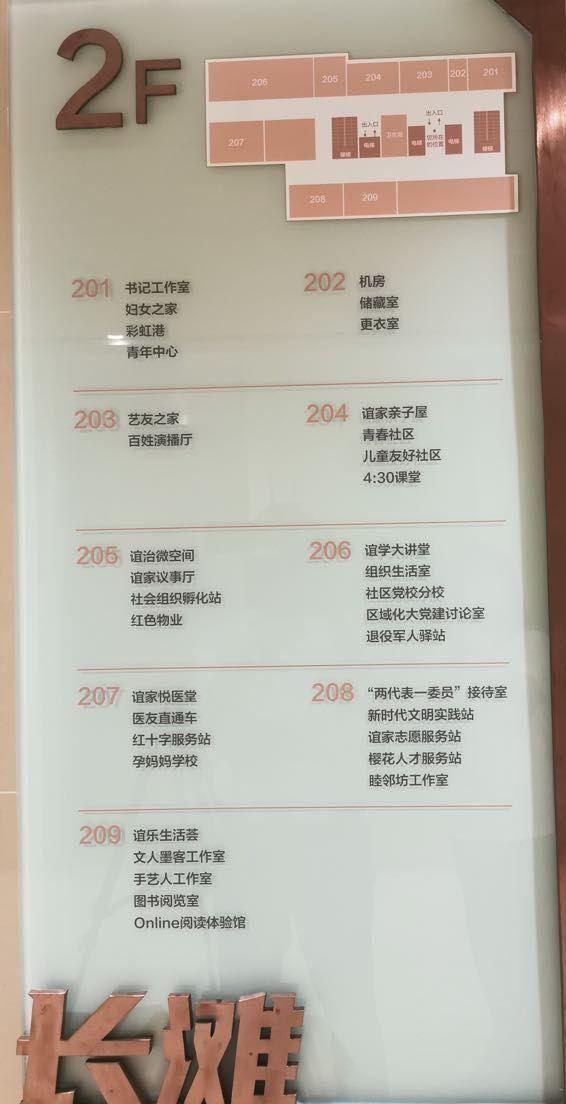 2F
206
205
204
203
202
201
207
出入口
出入口
楼梯
电梯
卫生间
电梯
您所在
的位置
电梯
楼梯
208
209
201
书记工作室
妇女之家
彩虹港
青年中心
202
机房
储藏室
更衣室
203
艺友之家
百姓演播厅
204
谊家亲子屋
青春社区
儿童友好社区
4:30课堂
205
谊治微空间
谊家议事厅
社会组织孵化站
红色物业
206
谊学大讲堂
组织生活室
社区党校分校
区域化大党建讨论室
退役军人驿站
207
谊家悦医堂
医友直通车
红十字服务站
孕妈妈学校
208
“两代表一委员”接待室
新时代文明实践站
谊家志愿服务站
樱花人才服务站
睦邻坊工作室
209
谊乐生活荟
文人墨客工作室
手艺人工作室
图书阅览室
Online阅读体验馆
长滩